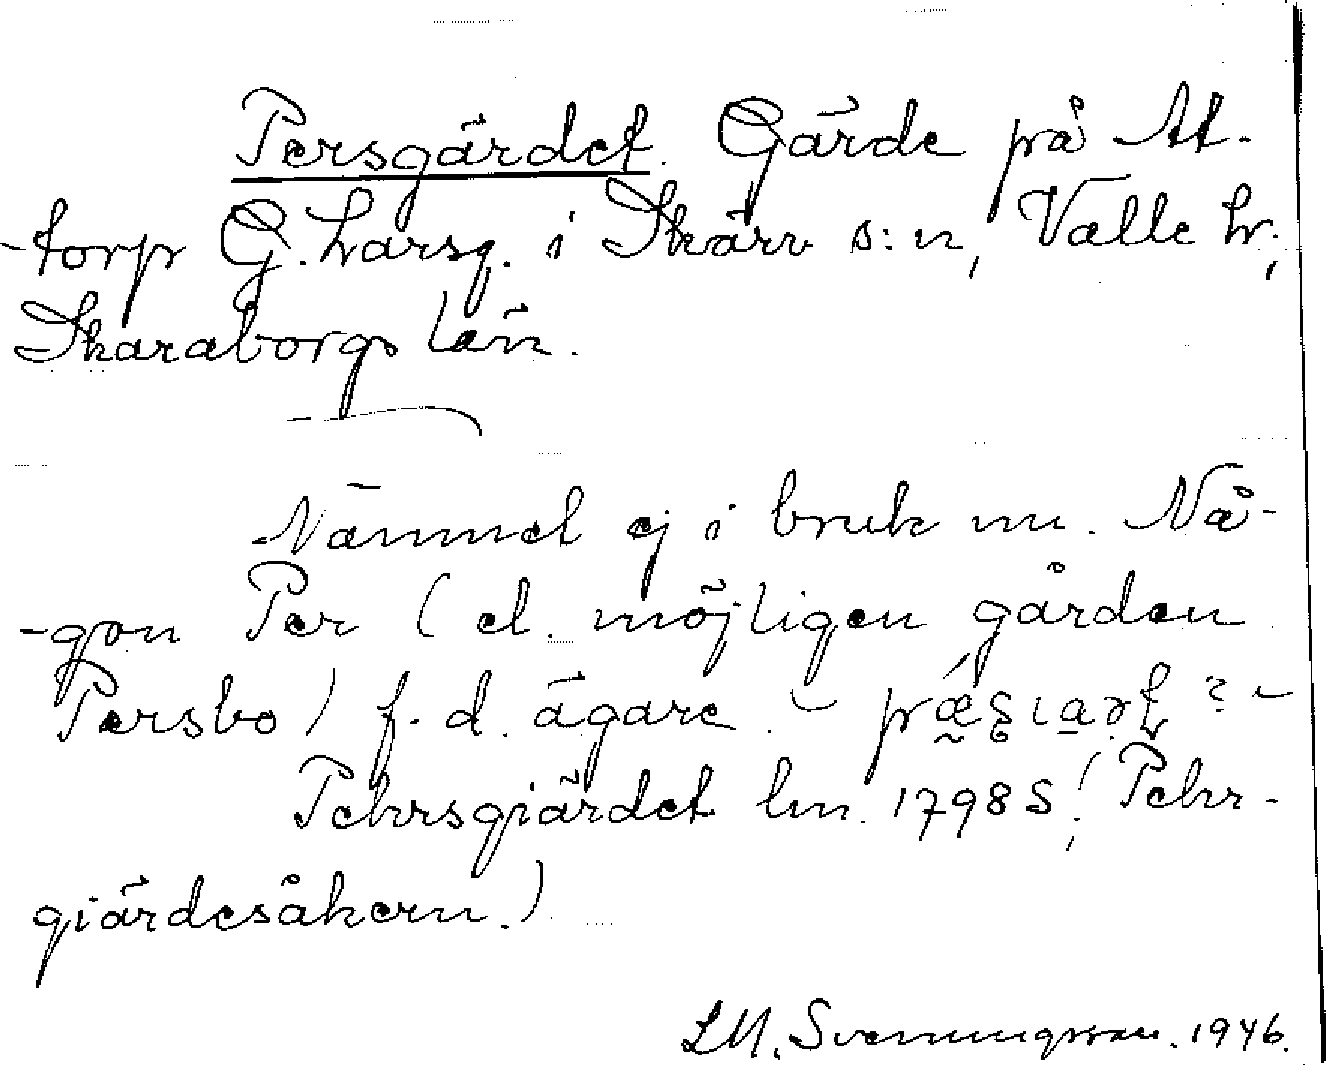 Persgärdet. Gärde på At-
-torp G. Larsg. i Skärv s:n, Valle hr;
Skaraborgs län.
Namnet ej i bruk nu. Nå-
-gon Per (el. möjligen gården
Persbo) f.d. ägare.
Pehrsgiärdet lm. 1798 S; (Pehr-
giärdesåkern.)
LM. Svenungsson. 1946.